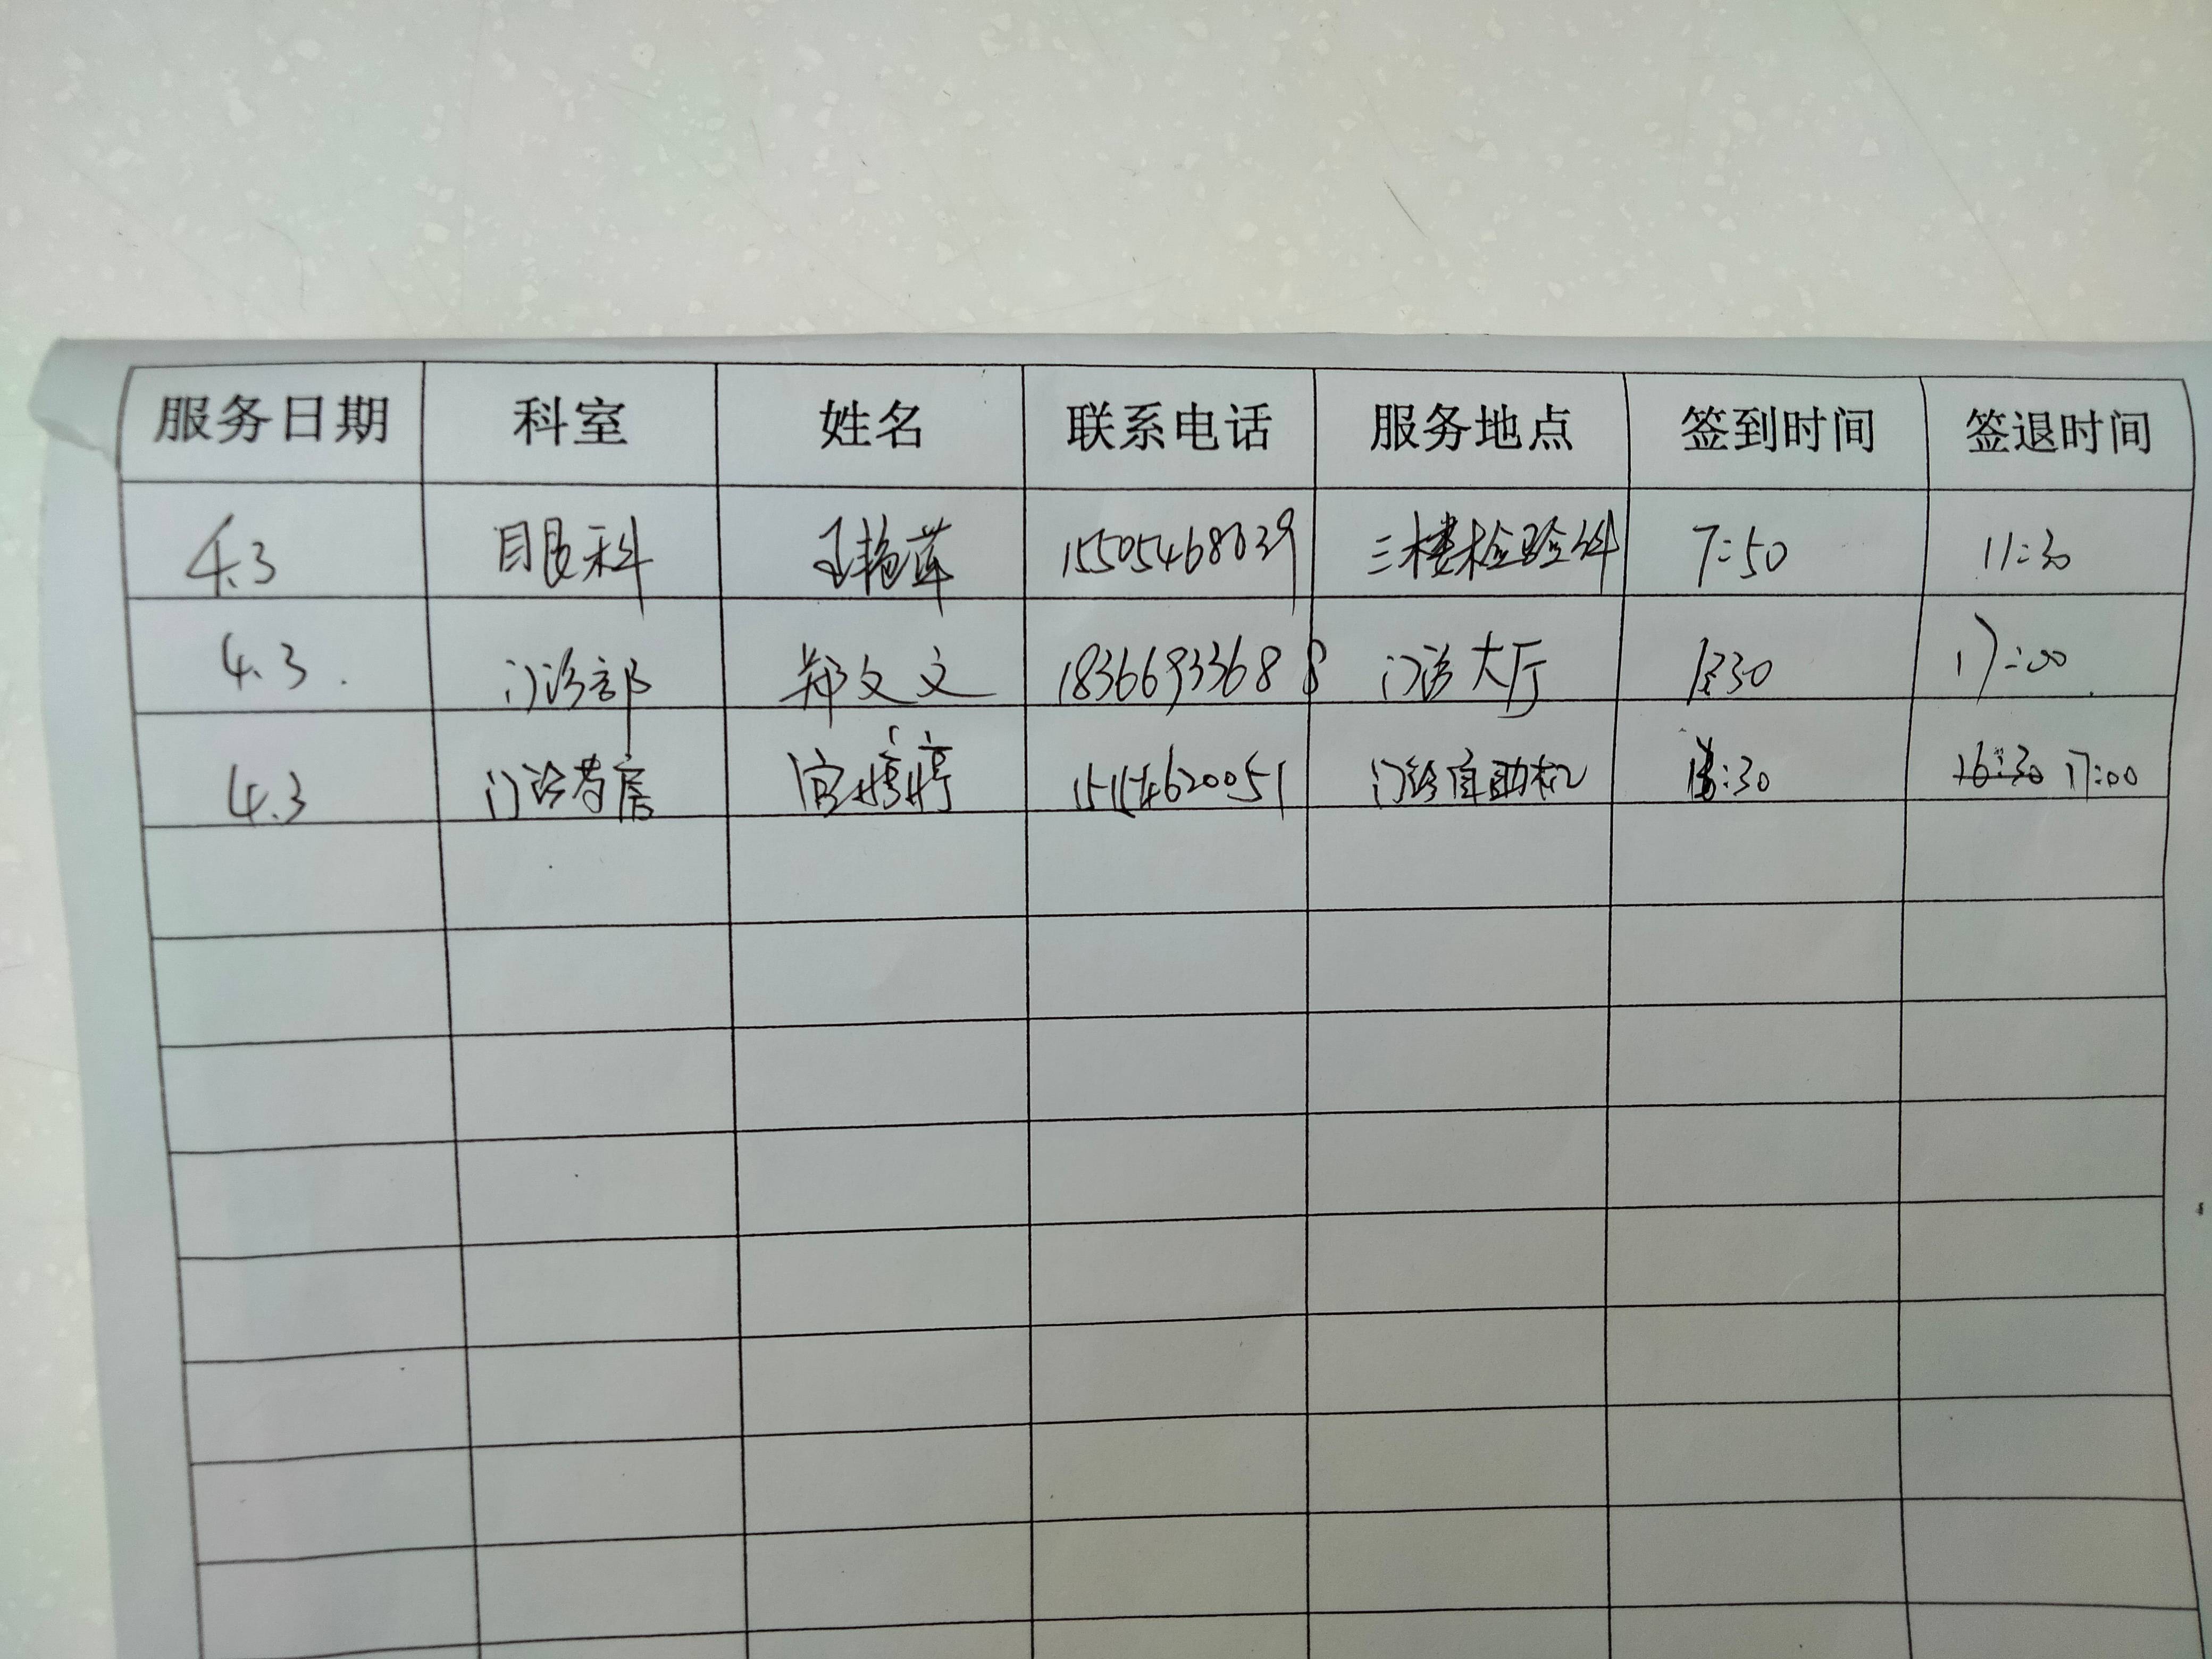 服务日期 科室 姓名 联系电话 服务地点 签到时间 签退时间
4.3 眼科 王艳萍 三楼检验科 7:50 11:30
4.3. 门诊部 郑文文 18366933688 门诊大厅 17:00
4.3 门诊药房 官婷婷 门诊自助机 16:30 17:00